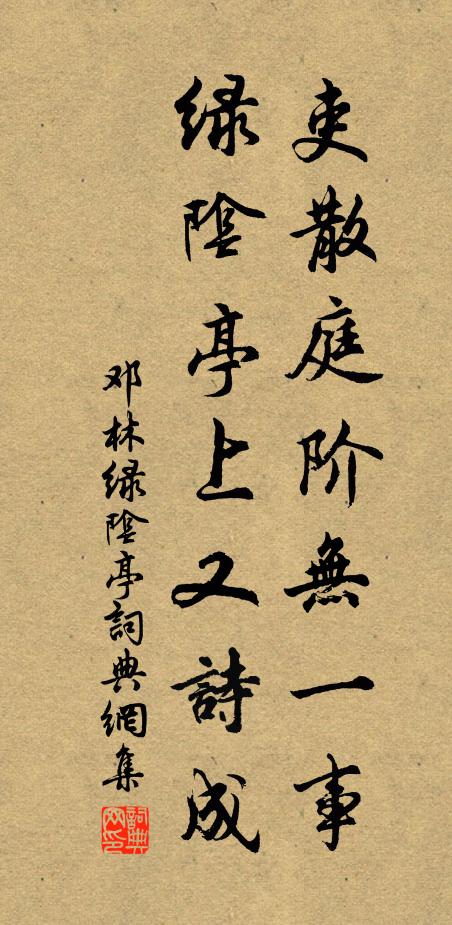 吏散庭阶無一事
緑陰亭上又詩成
邓林緑陰亭詞典網集
詞典網印